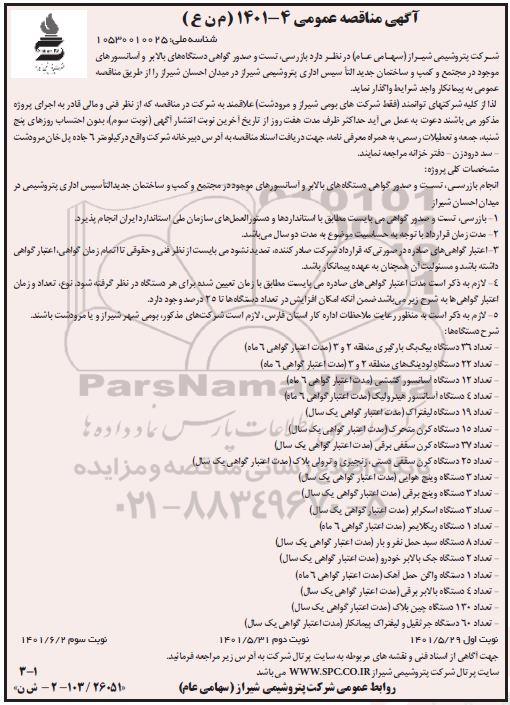 آگهی مناقصه عمومی ۴-۱۴۰۱ (م ن ع)
شناسه ملی: ۱۰۵۳۰۰۱۰۰۲۵
شرکت پتروشیمی شیراز (سهامی عام) در نظر دارد بازرسی، تست و صدور گواهی دستگاه‌های بالابر و آسانسورهای
موجود در مجتمع و کمپ و ساختمان جدید التأسیس اداری پتروشیمی شیراز در میدان احسان شیراز را از طریق مناقصه
عمومی به پیمانکار واجد شرایط واگذار نماید.
لذا از کلیه شرکتهای توانمند (فقط شرکت های بومی شیراز و مرودشت) علاقمند به شرکت در مناقصه که از نظر فنی و مالی قادر به اجرای پروژه
مذکور می باشند دعوت به عمل می آید حداکثر ظرف مدت هفت روز از تاریخ آخرین نوبت انتشار آگهی (نوبت سوم)، بدون احتساب روزهای پنج
شنبه، جمعه و تعطیلات رسمی، به همراه معرفی نامه، جهت دریافت اسناد مناقصه به آدرس دبیرخانه شرکت واقع در کیلومتر ۶ جاده پل خان مرودشت
– سد درودزن – دفتر خزانه مراجعه نمایند.
مشخصات کلی پروژه:
انجام بازرسی، تست و صدور گواهی دستگاه های بالابر و آسانسورهای موجود در مجتمع و کمپ و ساختمان جدیدالتأسیس اداری پتروشیمی در
میدان احسان شیراز
۱- بازرسی، تست و صدور گواهی می بایست مطابق با استانداردها و دستورالعمل‌های سازمان ملی استاندارد ایران انجام پذیرد.
۲- مدت زمان قرارداد با توجه به حساسیت موضوع به مدت دو سال می‌باشد.
۳- اعتبار گواهی‌های صادره در صورتی که قرارداد شرکت صادر کننده، تمدید نشود می بایست از نظر فنی و حقوقی تا اتمام زمان گواهی، اعتبار گواهی
داشته باشد و مسئولیت آن همچنان به عهده پیمانکار باشد.
۴- لازم به ذکر است مدت اعتبار گواهی‌های صادره می بایست مطابق با زمان تعیین شده برای هر دستگاه در نظر گرفته شود. نوع، تعداد و زمان
اعتبار گواهی ها به شرح زیر می‌باشد ضمن آنکه امکان افزایش در تعداد دستگاه‌ها تا ۲۵ درصد وجود دارد.
۵- لازم به ذکر است به منظور رعایت ملاحظات اداره کار استان فارس، لازم است شرکت‌های مذکور، بومی شهر شیراز و یا مرودشت باشند.
شرح دستگاه‌ها:
- تعداد ۳۶ دستگاه بیگ‌بگ بارگیری منطقه ۲ و ۳ (مدت اعتبار گواهی ۶ ماه)
- تعداد ۲۲ دستگاه لودینگ‌های منطقه ۲ و ۳ (مدت اعتبار گواهی ۶ ماه)
- تعداد ۱۲ دستگاه آسانسور کششی (مدت اعتبار گواهی ۶ ماه)
- تعداد ۴ دستگاه آسانسور هیدرولیک (مدت اعتبار گواهی ۶ ماه)
- تعداد ۱۹ دستگاه لیفتراک (مدت اعتبار گواهی یک سال)
- تعداد ۱۵ دستگاه کرن متحرک (مدت اعتبار گواهی یک سال)
- تعداد ۳۷ دستگاه کرن سقفی برقی (مدت اعتبار گواهی یک سال)
- تعداد ۲۵ دستگاه کرن سقفی دستی، زنجیری و ترولی بلاک (مدت اعتبار گواهی یک سال)
- تعداد ۳ دستگاه وینچ هوایی (مدت اعتبار گواهی یک سال)
- تعداد ۳ دستگاه وینچ برقی (مدت اعتبار گواهی یک سال)
- تعداد ۳ دستگاه اسکرابر (مدت اعتبار گواهی یک سال)
- تعداد ۱ دستگاه ریکلایمر (مدت اعتبار گواهی ۶ ماه)
- تعداد ۸ دستگاه سبد حمل نفر و بار (مدت اعتبار گواهی یک سال)
- تعداد ۲ دستگاه جک بالابر خودرو (مدت اعتبار گواهی یک سال)
- تعداد ۱ دستگاه واگن حمل آهک (مدت اعتبار گواهی ۶ ماه)
- تعداد ۴ دستگاه بالابر برقی (مدت اعتبار گواهی یک سال)
- تعداد ۱۳۰ دستگاه چین بلاک (مدت اعتبار گواهی یک سال)
- تعداد ۶۰ دستگاه جرثقیل و لیفتراک پیمانکار (مدت اعتبار گواهی یک سال)
نوبت اول ۱۴۰۱/۵/۲۹ نوبت دوم ۱۴۰۱/۵/۳۱ نوبت سوم ۱۴۰۱/۶/۲
جهت آگاهی از اسناد فنی و نقشه های مربوطه به سایت پرتال شرکت به آدرس زیر مراجعه فرمائید.
سایت پرتال شرکت پتروشیمی شیراز WWW.SPC.CO.IR می باشد ۳-۱
روابط عمومی شرکت پتروشیمی شیراز (سهامی عام) «۲۶۰۵۱/ ۱۰۳-۲- ش ن»
ParsNamadData
پایگاه اطلاع رسانی مناقصه و مزایده
۰۲۱-۸۸۳۴۹۶۷۰-۵